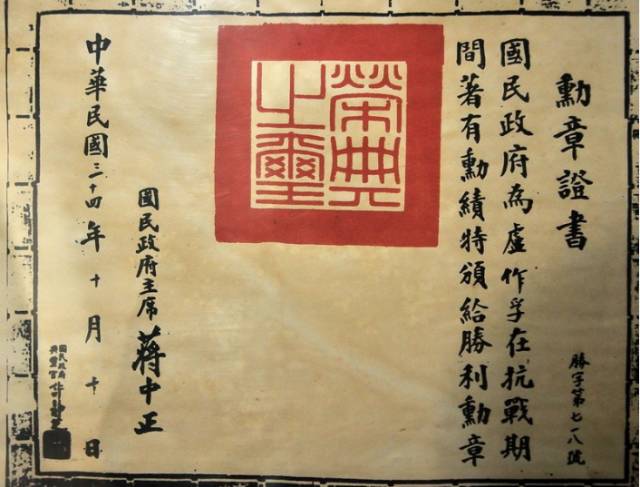 勳章證書
勝字第七一八號
國民政府為盧作孚在抗戰期
間著有勳績特頒給勝利勳章
榮典之璽
國民政府主席 蔣中正
中華民國三十四年十月十日
國民政府